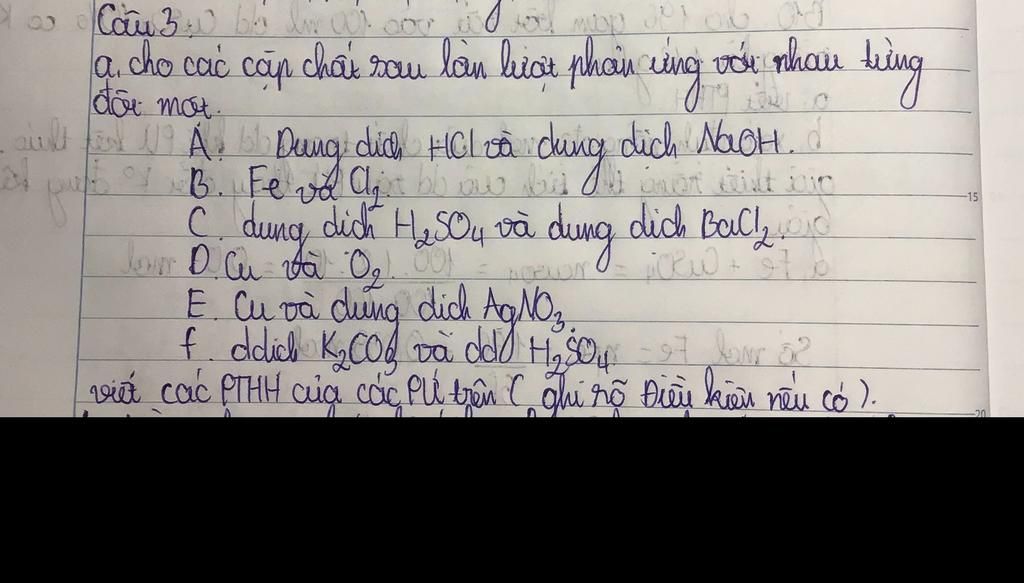 Câu 3
a, cho các cặp chất sau lần lượt phản ứng với nhau từng
đôi một.
A. Dung dịch HCl và dung dịch NaOH.
B. Fe và Cl2
C. dung dịch H2SO4 và dung dịch BaCl2.
D. Cu và O2
E. Cu và dung dịch AgNO3.
f. ddịch K2CO3 và dd H2SO4
viết các PTHH của các PƯ trên ( ghi rõ Điều kiện nếu có ).